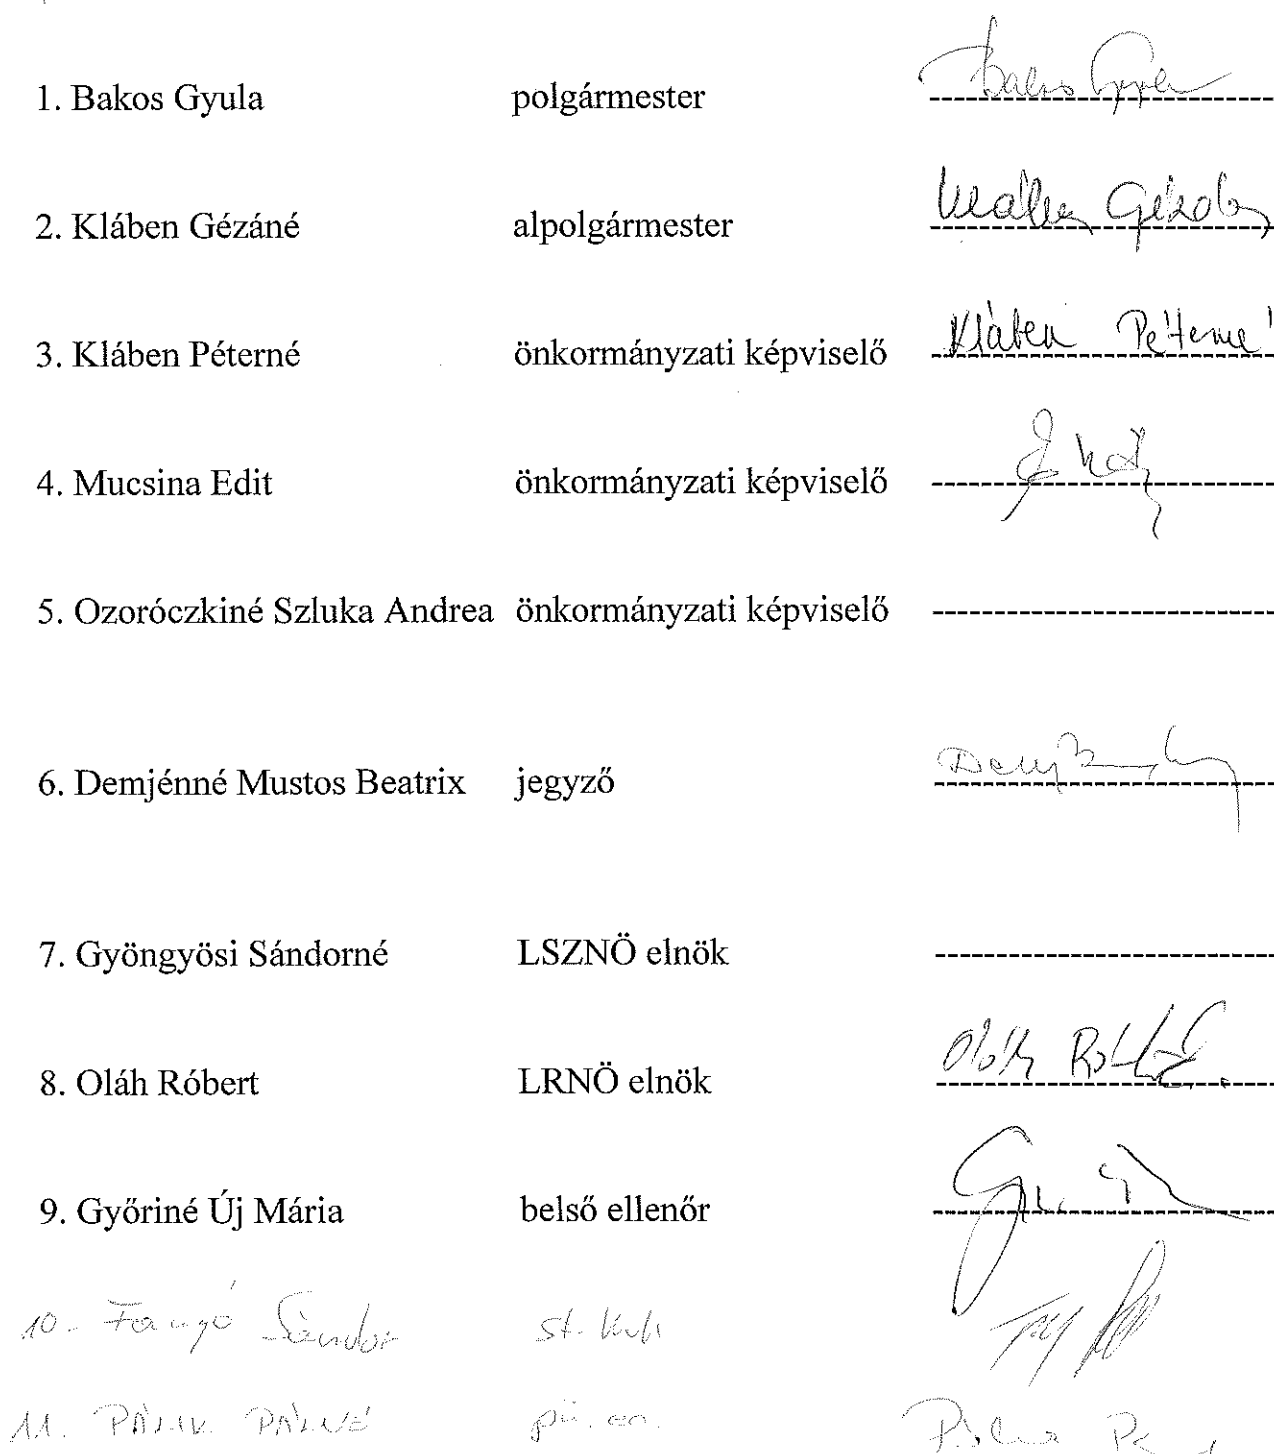 1. Bakos Gyula polgármester Bakos Gyula
2. Kláben Gézáné alpolgármester Kláben
3. Kláben Péterné önkormányzati képviselő Kláben Péterné
4. Mucsina Edit önkormányzati képviselő
5. Ozoróczkiné Szluka Andrea önkormányzati képviselő
6. Demjénné Mustos Beatrix jegyző
7. Gyöngyösi Sándorné LSZNÖ elnök
8. Oláh Róbert LRNÖ elnök Oláh Róbert
9. Győriné Új Mária belső ellenőr
10. Sándor
11. PÁLNÉ